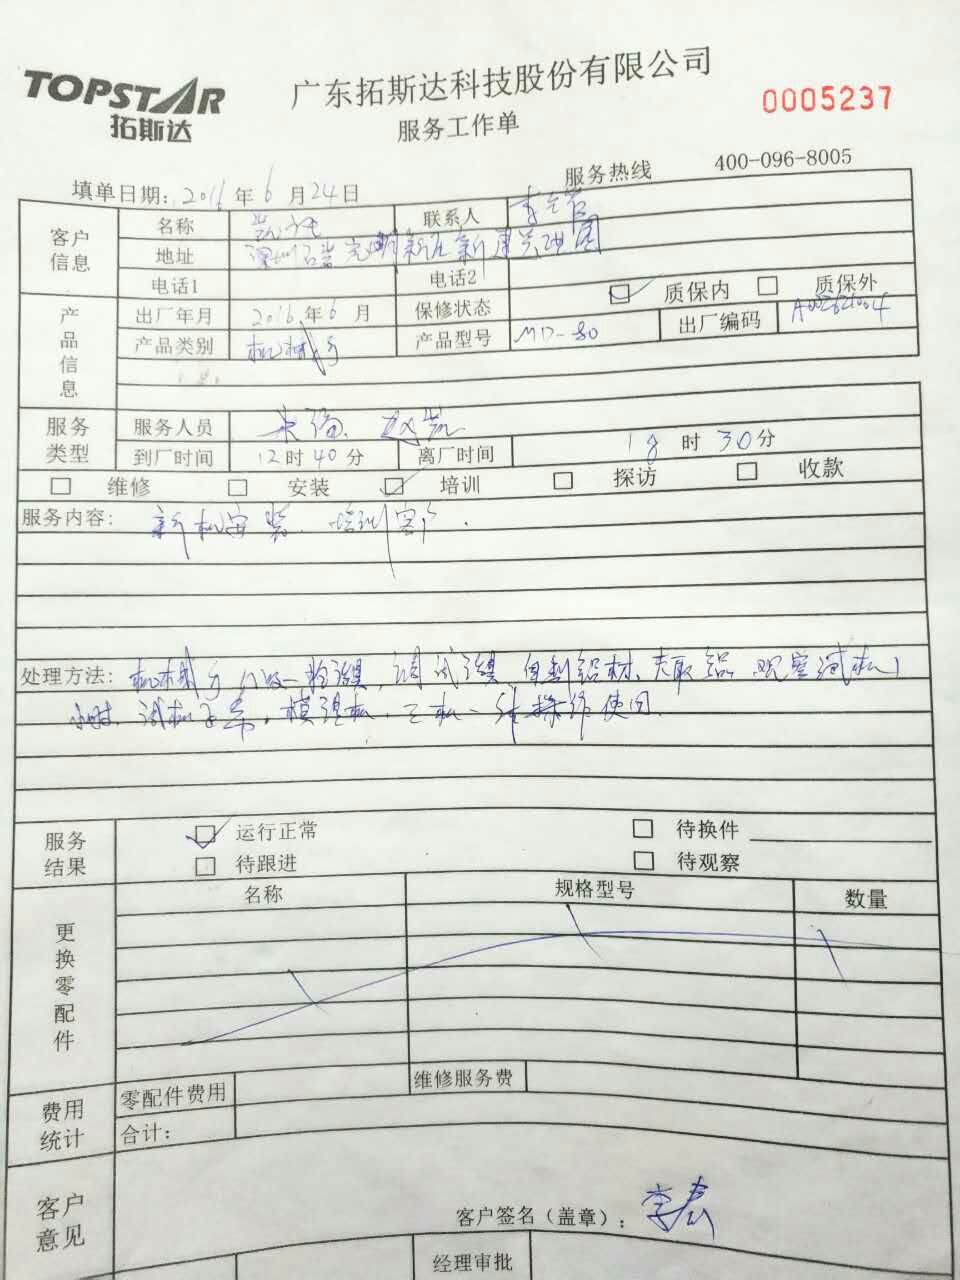 TOPSTAR
拓斯达
广东拓斯达科技股份有限公司
服务工作单
0005237
服务热线 400-096-8005
填单日期: 2016年6月24日
客户信息
名称
联系人
地址 深圳
电话1 电话2
产品信息
出厂年月 2016年6月
保修状态 质保内 质保外
产品类别 机械手
产品型号 MD-80
出厂编码
服务类型
服务人员
到厂时间 12时40分
离厂时间 18时30分
维修 安装 培训 探访 收款
服务内容: 新机安装、培训客户.
处理方法: 机械手 调试 观察试机1
小时, 试机正常, 操作使用.
服务结果
运行正常 待换件
待跟进 待观察
更换零配件
名称 规格型号 数量
费用统计
零配件费用 维修服务费
合计:
客户意见
客户签名(盖章):
经理审批